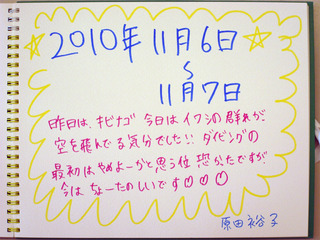 2010年 11月6日
〜
11月7日
昨日は、キビナゴ 今日はイワシの群れが、
空を飛んでる気分でした!! ダイビングの
最初はやめよーかと思う位 恐かたですが、
今は なーたのしいです♡♡♡
原田裕子